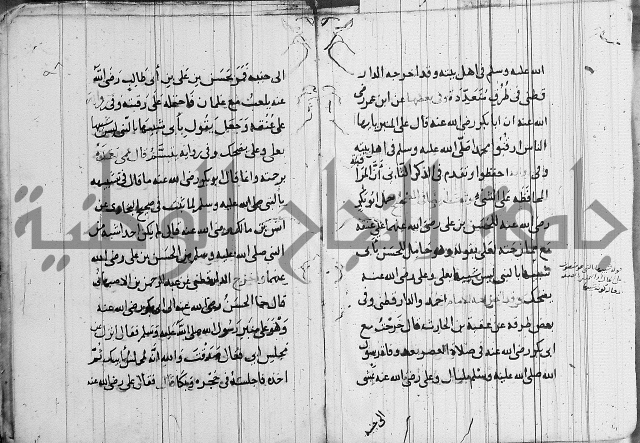 الله عليه وسلم في اهل بيته وقد اخرجه الدار
قطني في طرف متعددة وفي بعضها عن ابن عمر رضي
الله عنه ان ابا بكر رضي الله عنه قال على المنبر يا ايها
الناس ارقبوا محمدا صلى الله عليه وسلم في اهل بيته
اي احفظوا وتقدم في الذكر الثاني ان المراقبة
المحافظة على الشيء حمل ابو بكر
رضي الله عنه للحسن بن علي رضي الله عنهما على عنقه
مع ممازحته لعلي بقوله وهو حامل الحسن بابي
شبيها بالنبي ليس شبيها بعلي وعلي رضي الله عنه
يضحك الامام احمد والدارقطني وفي
بعض طرقه عن عقبة بن الحارث قال خرجت مع
ابي بكر رضي الله عنه في صلاة العصر بعد وفاة رسول
الله صلى الله عليه وسلم بليال وعلي رضي الله عنه يمشي
الى جنبه
الى جنبه فمر بحسن بن علي بن ابي طالب رضي الله
عنه يلعب مع غلمان فاحتمله على رقبته وفي رواية
على عنقه وجعل يقول بابي شبيها بالنبي ليس شبيها
بعلي وعلي يضحك وفي رواية يتبسم
وانما قال ابو بكر رضي الله عنه ما قال في تشبيهه
بالنبي صلى الله عليه وسلم لما ثبت في صحيح البخاري عن
انس بن مالك رضي الله عنه قال لم يكن احد اشبه بـ
النبي صلى الله عليه وسلم من الحسن بن علي رضي الله
عنهما واخرج الدارقطني عن عبد الرحمن بن الاصبهاني
قال جاء الحسن رضي الله عنه الى ابي بكر رضي الله عنه
وهو على منبر رسول الله صلى الله عليه وسلم فقال انزل عن
مجلس ابي فقال صدقت والله انه لمجلس ابيك ثم
اخذه فاجلسه في حجره وبكا فقال علي رضي الله عنه
جامعة النجاح الوطنية